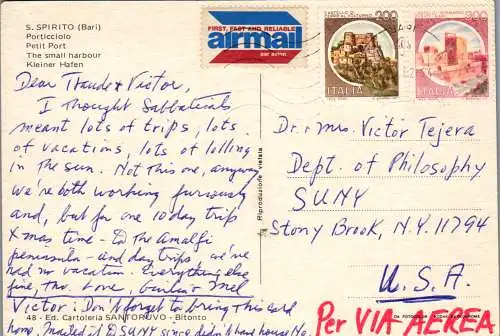 S. SPIRITO (Bari)
Porticciolo
Petit Port
The small harbour
Kleiner Hafen
FIRST, FAST AND RELIABLE
airmail
par avion
200
ITALIA
300
ITALIA
Dear Traude & Victor,
I thought Sabbaticals
meant lots of trips, lots
of vacations, lots of lolling
in the sun. Not this one, anyway
we're both working furiously
and, but for one 10 day trip
Xmas time - to the Amalfi
peninsula - and day trips we've
had no vacation. Everything else
fine, tho. Love
Victor: Don't forget to bring this card
home. Mailed it to SUNY since didn't have house No.
48 - Ed. Cartoleria SANTORUVO - Bitonto
Riproduzione vietata
Dr. & Mrs. Victor Tejera
Dept. of Philosophy
SUNY
Stony Brook, N.Y. 11794
U.S.A.
Per VIA AEREA